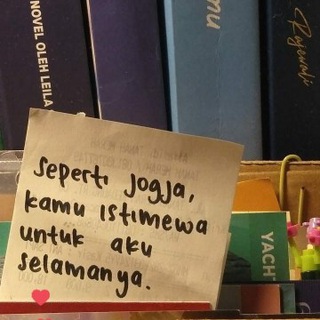 NOVEL OLEH LEILA
nu
Rajawali
seperti jogja,
kamu istimewa
untuk aku
selamanya.
YACH